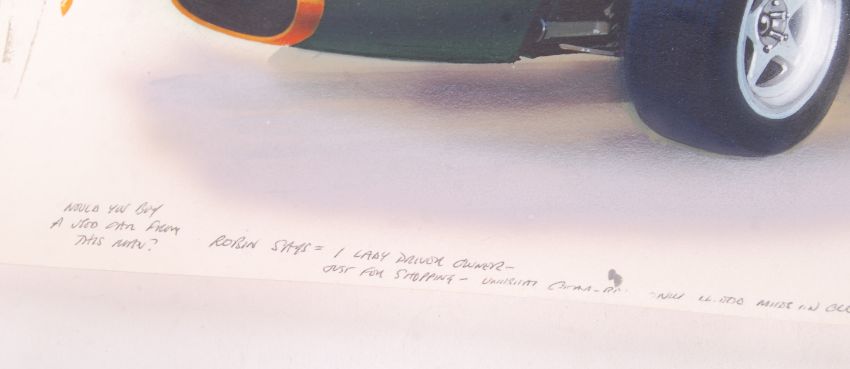 WOULD YOU BUY
A USED CAR FROM
THIS MAN?
ROBIN SAYS = 1 LADY DRIVER OWNER -
JUST FOR SHOPPING - ONLY MILES IN